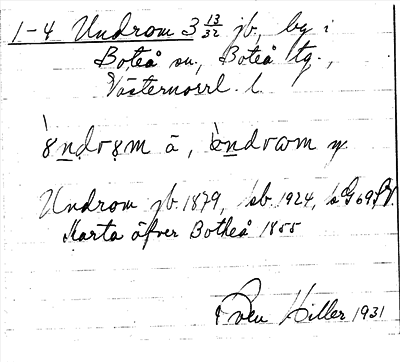 1-4 Undrom 3 13/32 jb., by i
Boteå sn., Boteå tg.,
Västernorrl. l.
ùndrøm ä, ùndrɷm y.
Undrom jb. 1879, sb. 1924, GG 69 SV.
Karta öfver Botheå 1855
Sven Hiller 1931